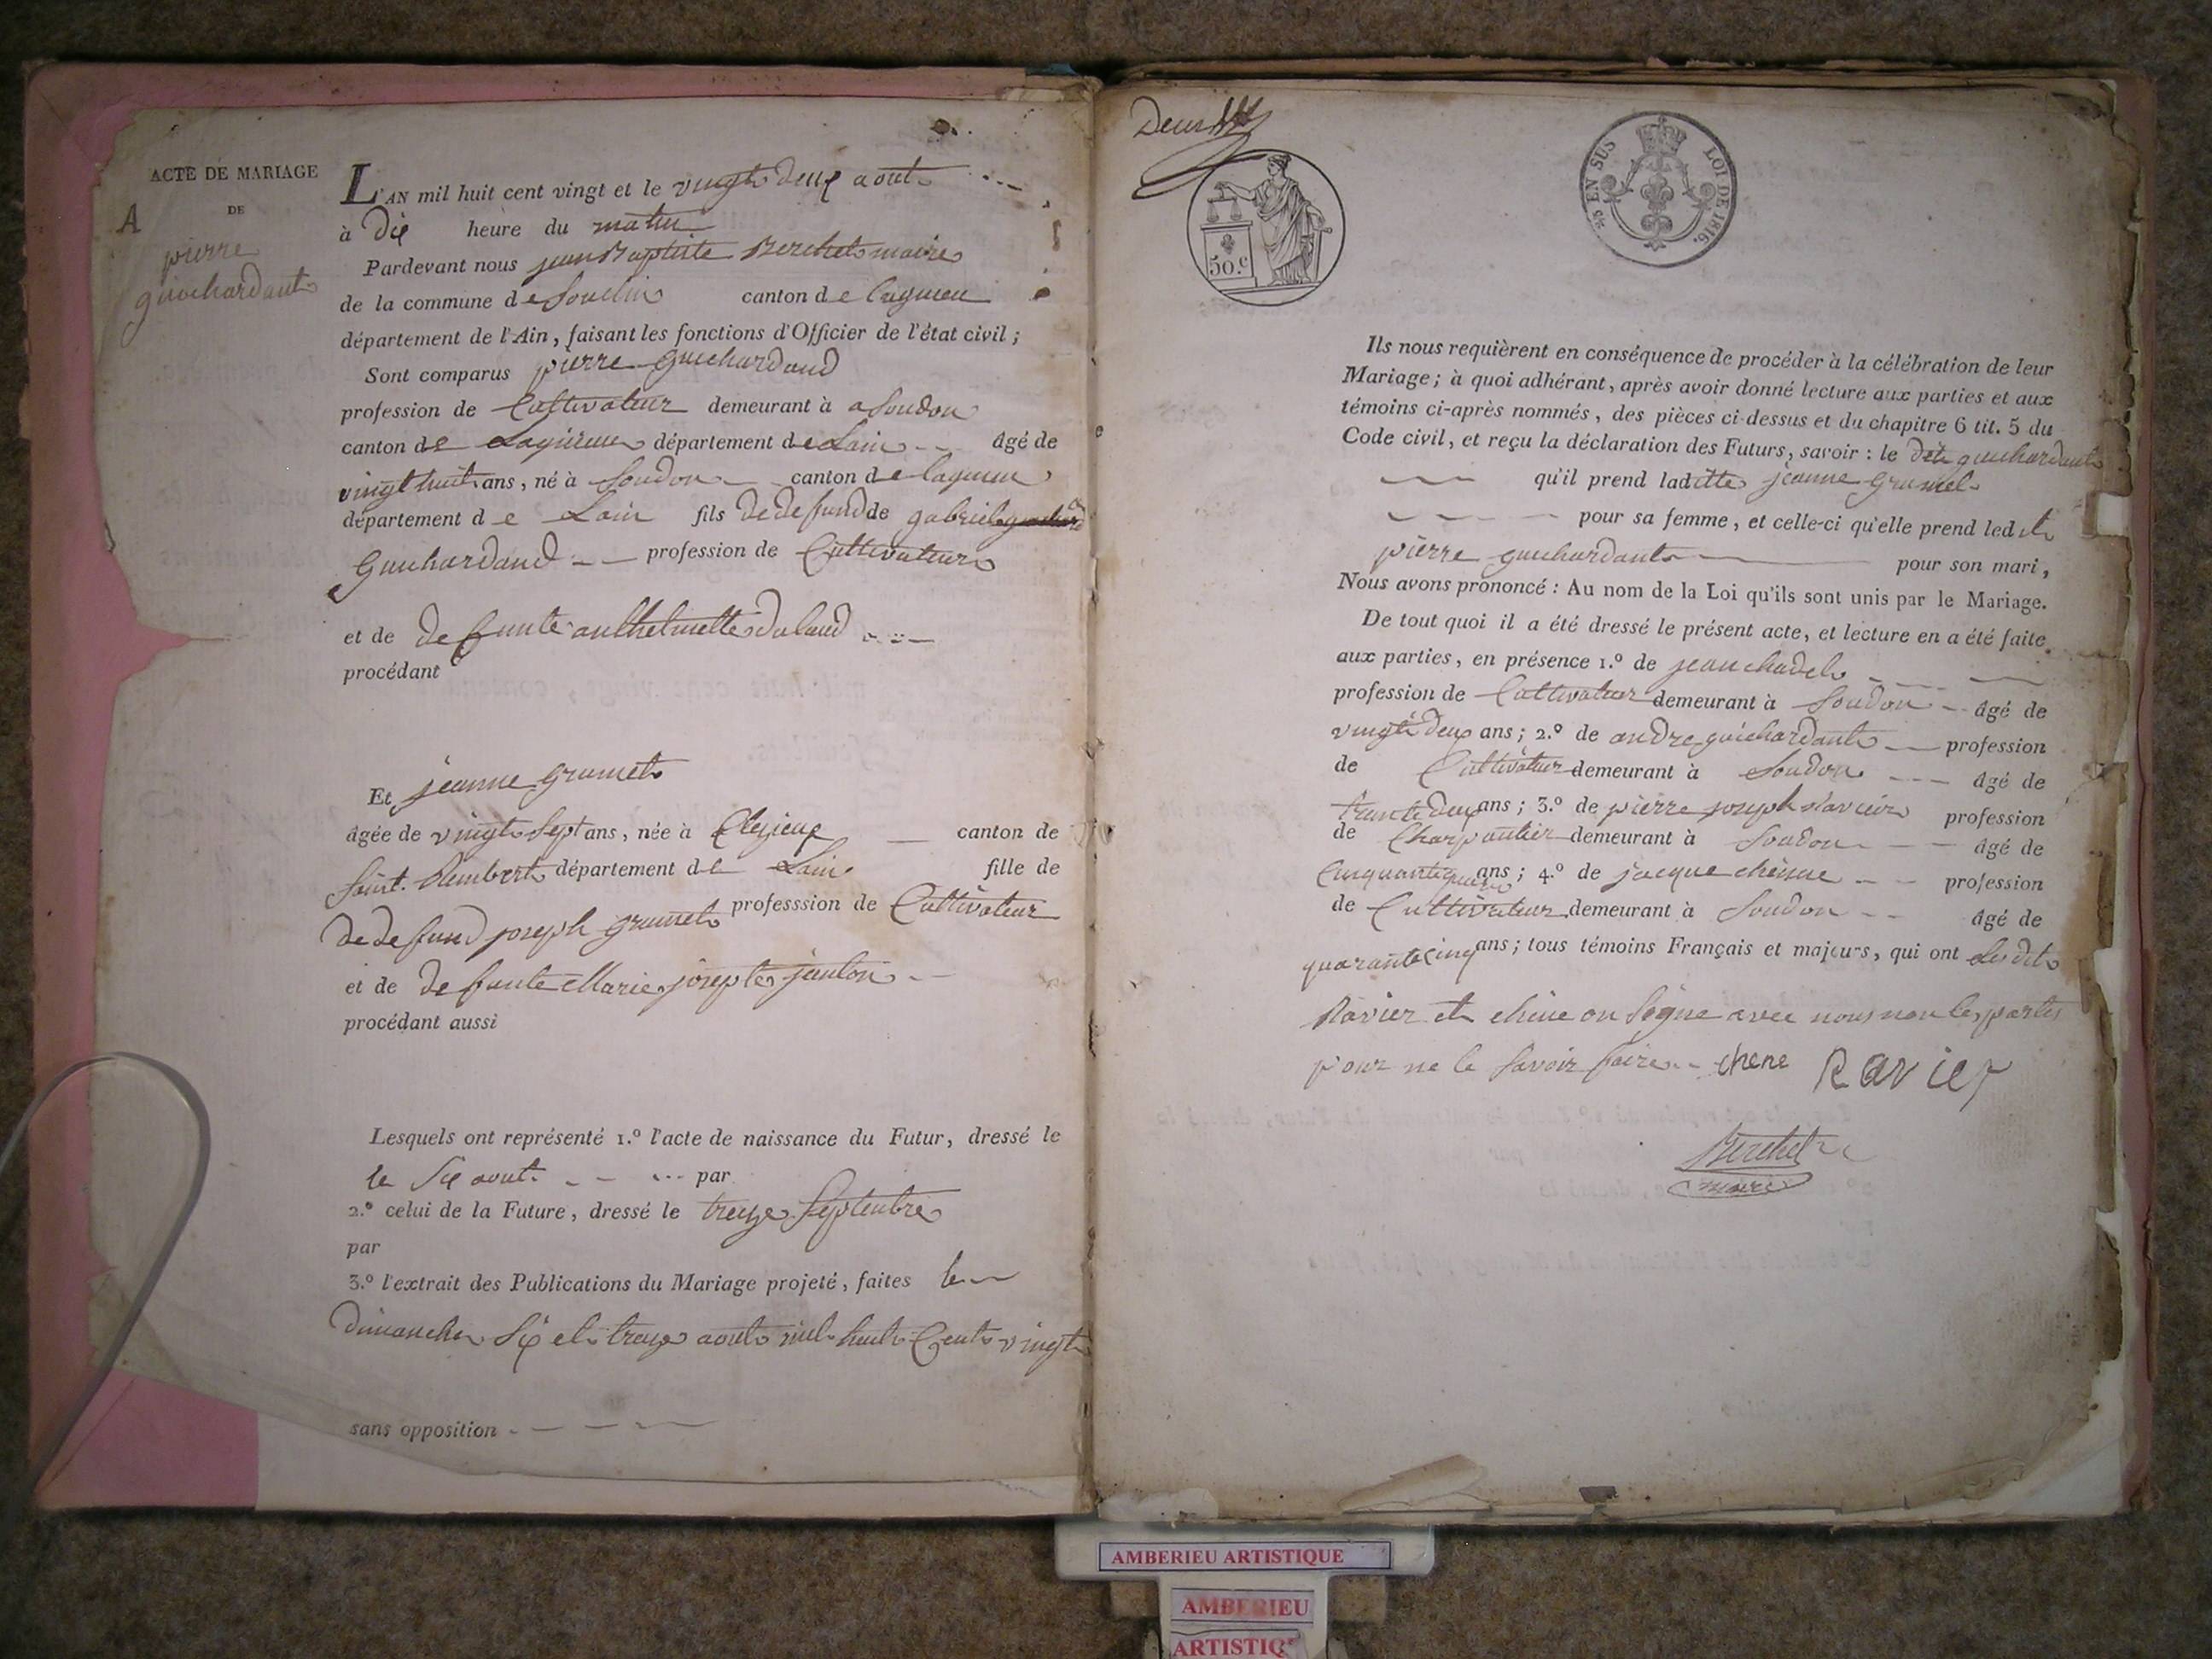 ACTE DE MARIAGE
DE
A
pierre
guichardant
L'AN mil huit cent vingt et le vingt deux aout
à dix heure du matin
Pardevant nous jean Baptiste Berchet maire
de la commune de Souclin canton de lagnieu
département de l'Ain, faisant les fonctions d'Officier de l'état civil;
Sont comparus pierre guichardand
profession de Cultivateur demeurant à a Soudon
canton de Lagnieu département de Lain âgé de
vingt huit ans, né à Soudon canton de lagnieu
département de Lain fils de defund de gabriel
Guichardand profession de Cultivateur
et de defunte anthelmette
procédant
Et jeanne grumet
âgée de vingt Sept ans, née à Clezieux canton de
Saint. Rambert département de Lain fille de
de defund joseph grumet professsion de Cultivateur
et de defunte Marie josepte janton
procédant aussi
Lesquels ont représenté 1.º l'acte de naissance du Futur, dressé le
le Six aout. par
2.º celui de la Future, dressé le treize Septembre
par
3.º l'extrait des Publications du Mariage projeté, faites le
dimanche Six et treize aout mil huit Cent vingt
sans opposition
Deux
50.c
EN SUS LOI DE 1816.
Ils nous requièrent en conséquence de procéder à la célébration de leur
Mariage; à quoi adhérant, après avoir donné lecture aux parties et aux
témoins ci-après nommés, des pièces ci-dessus et du chapitre 6 tit. 5 du
Code civil, et reçu la déclaration des Futurs, savoir: le dit guichardant
qu'il prend laditte jeanne grumet
pour sa femme, et celle-ci qu'elle prend ledit
pierre guichardant pour son mari,
Nous avons prononcé: Au nom de la Loi qu'ils sont unis par le Mariage.
De tout quoi il a été dressé le présent acte, et lecture en a été faite
aux parties, en présence 1.º de jean chadel
profession de Cultivateur demeurant à Soudon âgé de
vingt deux ans; 2.º de andre guichardant profession
de Cultivateur demeurant à Soudon âgé de
trante deux ans; 3.º de pierre joseph Ravier profession
de Charpantier demeurant à Soudon âgé de
Cinquante ans; 4.º de jacque cheine profession
de Cultivateur demeurant à Soudon âgé de
quarante cinq ans; tous témoins Français et majeurs, qui ont Lesdit
Ravier et cheine on Signe avec nous non les partis
pour ne le Savoir faire chene Ravier
Berchet
maire
AMBERIEU ARTISTIQUE
AMBERIEU
ARTISTIQ